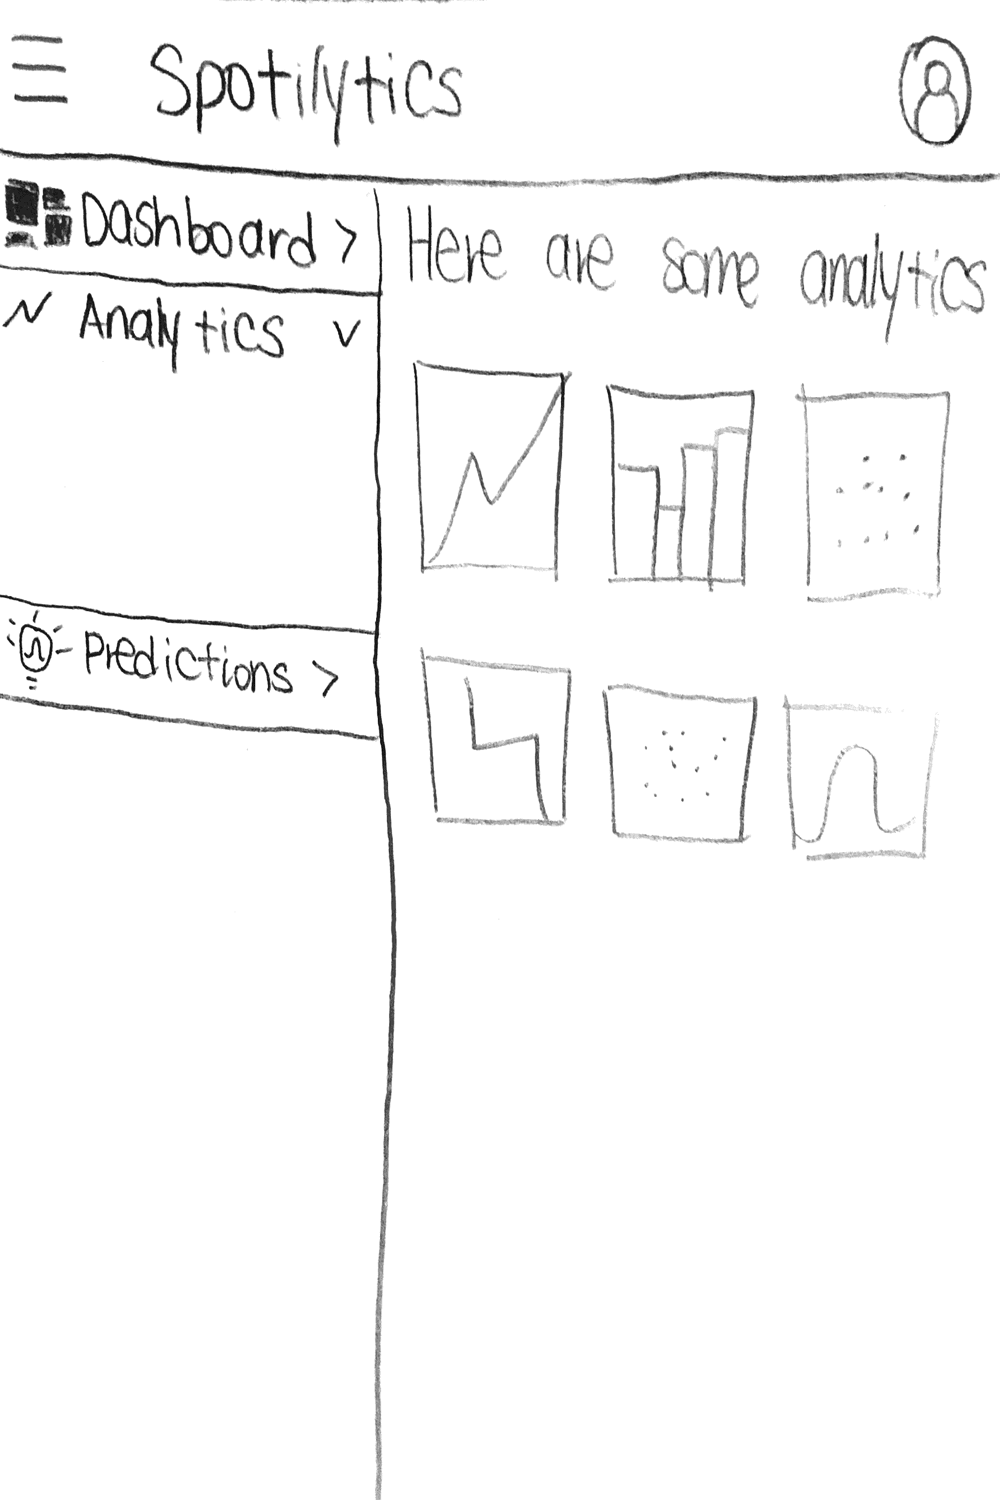 Spotilytics
Dashboard >
Analytics v
Predictions >
Here are some analytics